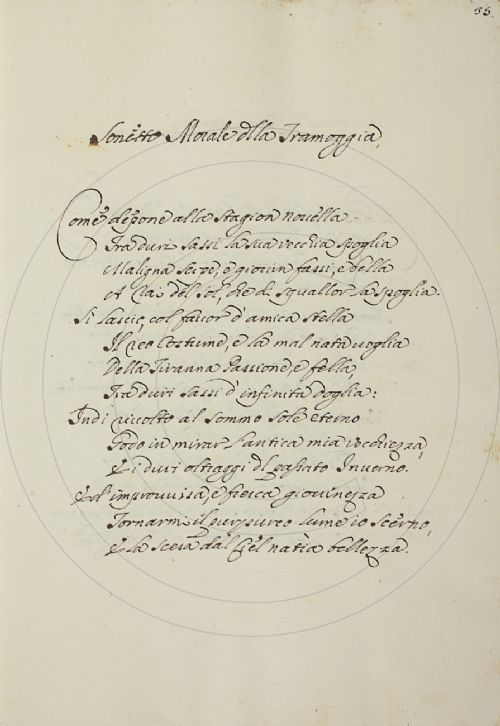 35.
Sonetto Morale della Tramoggia
Come depone alla Stagion novella
Tra duri sassi la sua vecchia spoglia
Maligna Serpe, e giovin fassi, e bella
A rai del Sol, che di squallor la spoglia.
Si lascio, col favor d'amica stella
Il reo Costume, e la mal nata voglia
Della Tiranna Passione, e fella,
Tra duri sassi d'infinita doglia:
Indi rivolto al sommo sole eterno
Godo in mirar l'antica mia vecchiezza,
E i duri oltraggi del passato Inverno.
E d'improvvisa, e fresca giovinezza
Tornarmi il purpureo lume io scerno,
E la scesa dal Ciel natia bellezza.